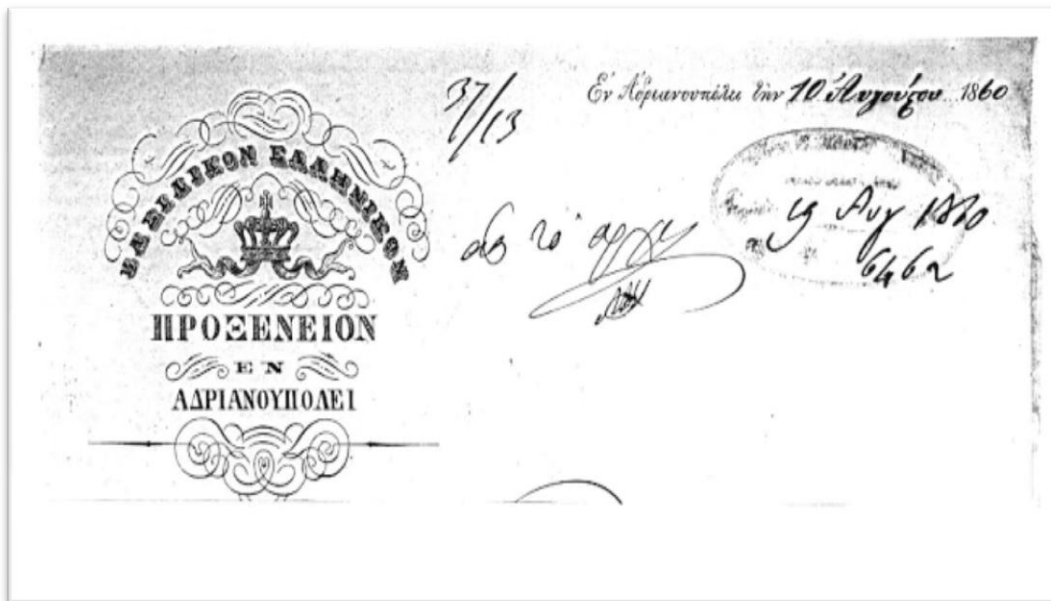 ΒΑΣΙΛΙΚΟΝ ΕΛΛΗΝΙΚΟΝ
ΠΡΟΞΕΝΕΙΟΝ
ΕΝ
ΑΔΡΙΑΝΟΥΠΟΛΕΙ
37/13
Ἐν Ἀδριανουπόλει τὴν 10 Αὐγούστου 1860
19 Αυγ 1860
6462